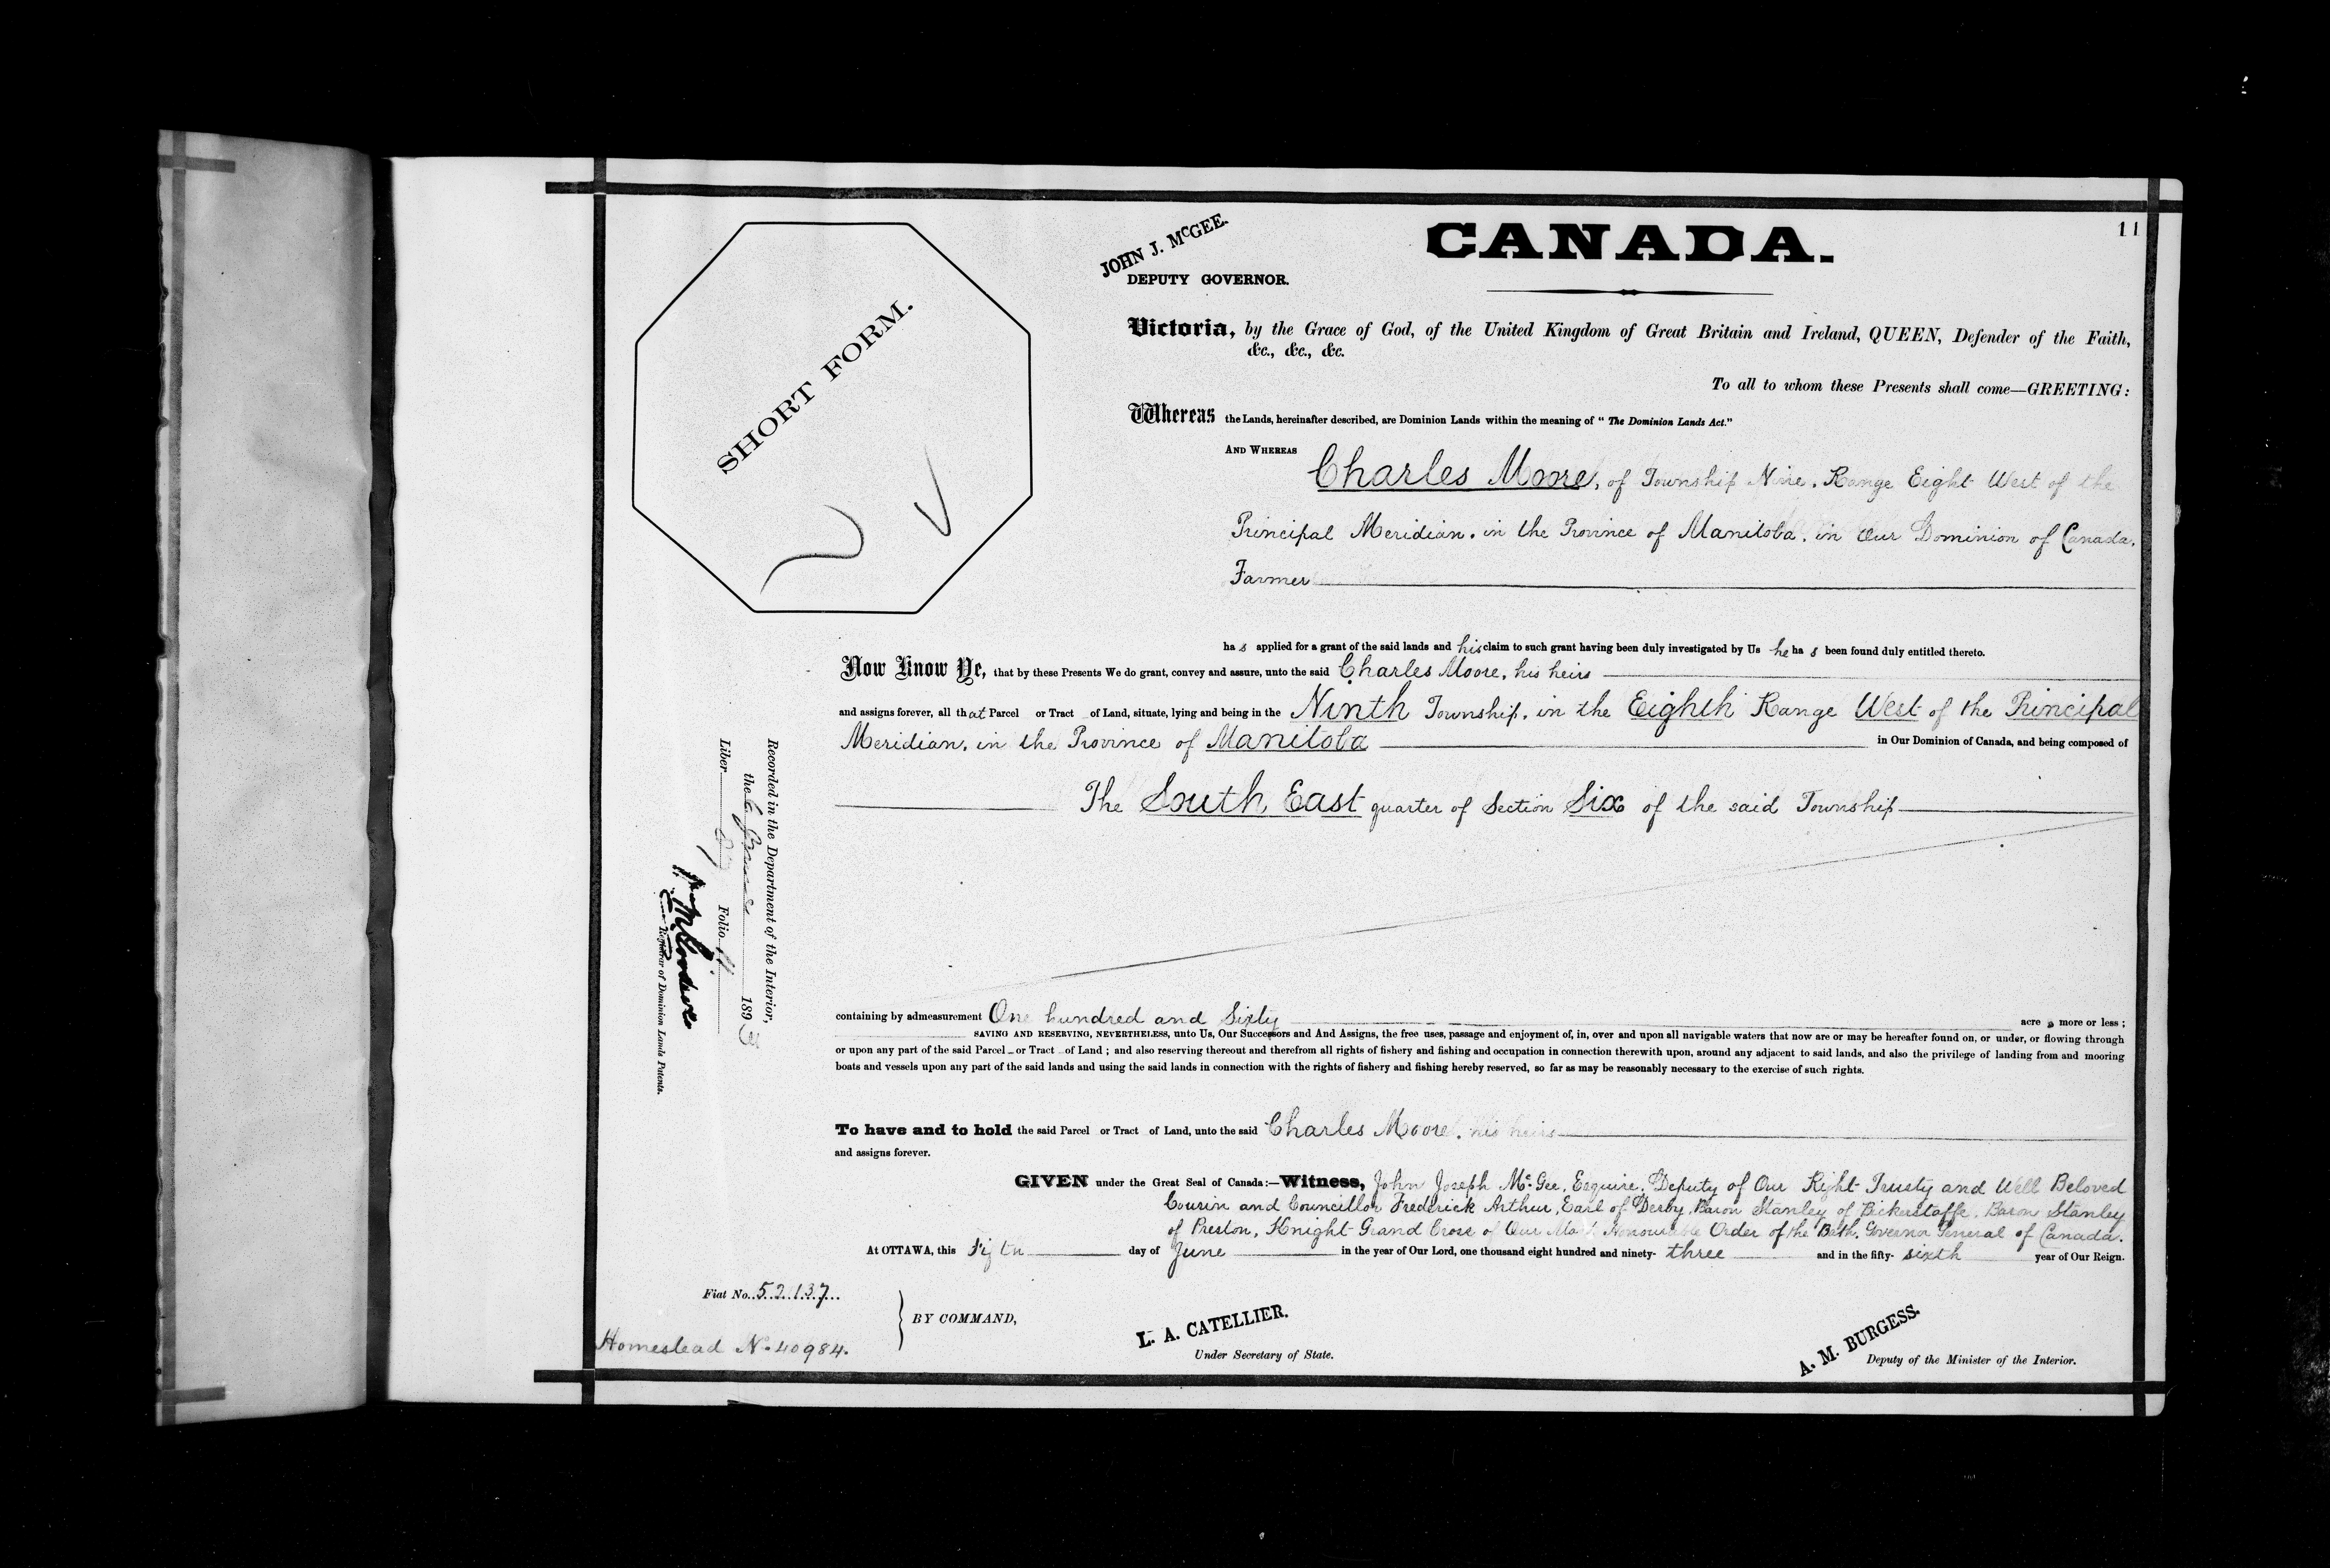 11
CANADA.
JOHN J. McGEE.
DEPUTY GOVERNOR.
SHORT FORM.
Victoria, by the Grace of God, of the United Kingdom of Great Britain and Ireland, QUEEN, Defender of the Faith,
&c., &c., &c.
To all to whom these Presents shall come—GREETING:
Whereas the Lands, hereinafter described, are Dominion Lands within the meaning of "The Dominion Lands Act."
AND WHEREAS
Charles Moore, of Township Nine, Range Eight West of the
Principal Meridian, in the Province of Manitoba, in Our Dominion of Canada,
Farmer
has applied for a grant of the said lands and his claim to such grant having been duly investigated by Us he has been found duly entitled thereto.
Now Know Ye, that by these Presents We do grant, convey and assure, unto the said Charles Moore, his heirs
and assigns forever, all that Parcel or Tract of Land, situate, lying and being in the Ninth Township, in the Eighth Range West of the Principal
Meridian, in the Province of Manitoba in Our Dominion of Canada, and being composed of
The South East quarter of Section Six of the said Township
containing by admeasurement One hundred and Sixty acres more or less;
SAVING AND RESERVING, NEVERTHELESS, unto Us, Our Successors and And Assigns, the free uses, passage and enjoyment of, in, over and upon all navigable waters that now are or may be hereafter found on, or under, or flowing through
or upon any part of the said Parcel or Tract of Land; and also reserving thereout and therefrom all rights of fishery and fishing and occupation in connection therewith upon, around any adjacent to said lands, and also the privilege of landing from and mooring
boats and vessels upon any part of the said lands and using the said lands in connection with the rights of fishery and fishing hereby reserved, so far as may be reasonably necessary to the exercise of such rights.
To have and to hold the said Parcel or Tract of Land, unto the said Charles Moore, his heirs
and assigns forever.
GIVEN under the Great Seal of Canada:—Witness, John Joseph McGee, Esquire, Deputy of Our Right Trusty and Well Beloved
Cousin and Councillor Frederick Arthur, Earl of Derby, Baron Stanley of Bickerstaffe, Baron Stanley
of Preston, Knight Grand Cross of Our Most Honourable Order of the Bath, Governor General of Canada.
At OTTAWA, this day of June in the year of Our Lord, one thousand eight hundred and ninety-three and in the fifty-sixth year of Our Reign.
Fiat No. 52137
BY COMMAND,
Homestead No. 40984.
L. A. CATELLIER.
Under Secretary of State.
A. M. BURGESS.
Deputy of the Minister of the Interior.
Recorded in the Department of the Interior,
the 189
Liber Folio 11
Registrar of Dominion Lands Patents.